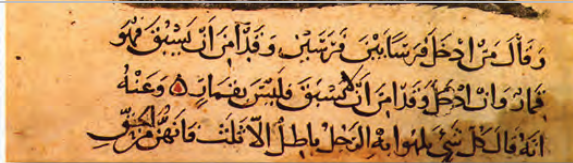 وقال من ادخل فرسا بين فرسين وقد امن ان يسبق فهو
قمار وان ادخل وقد امن ان يسبق فليس بقمار وعنه
انه قال كل شي يلهوا به الرجل باطل الا ثلث فانهن من الحق